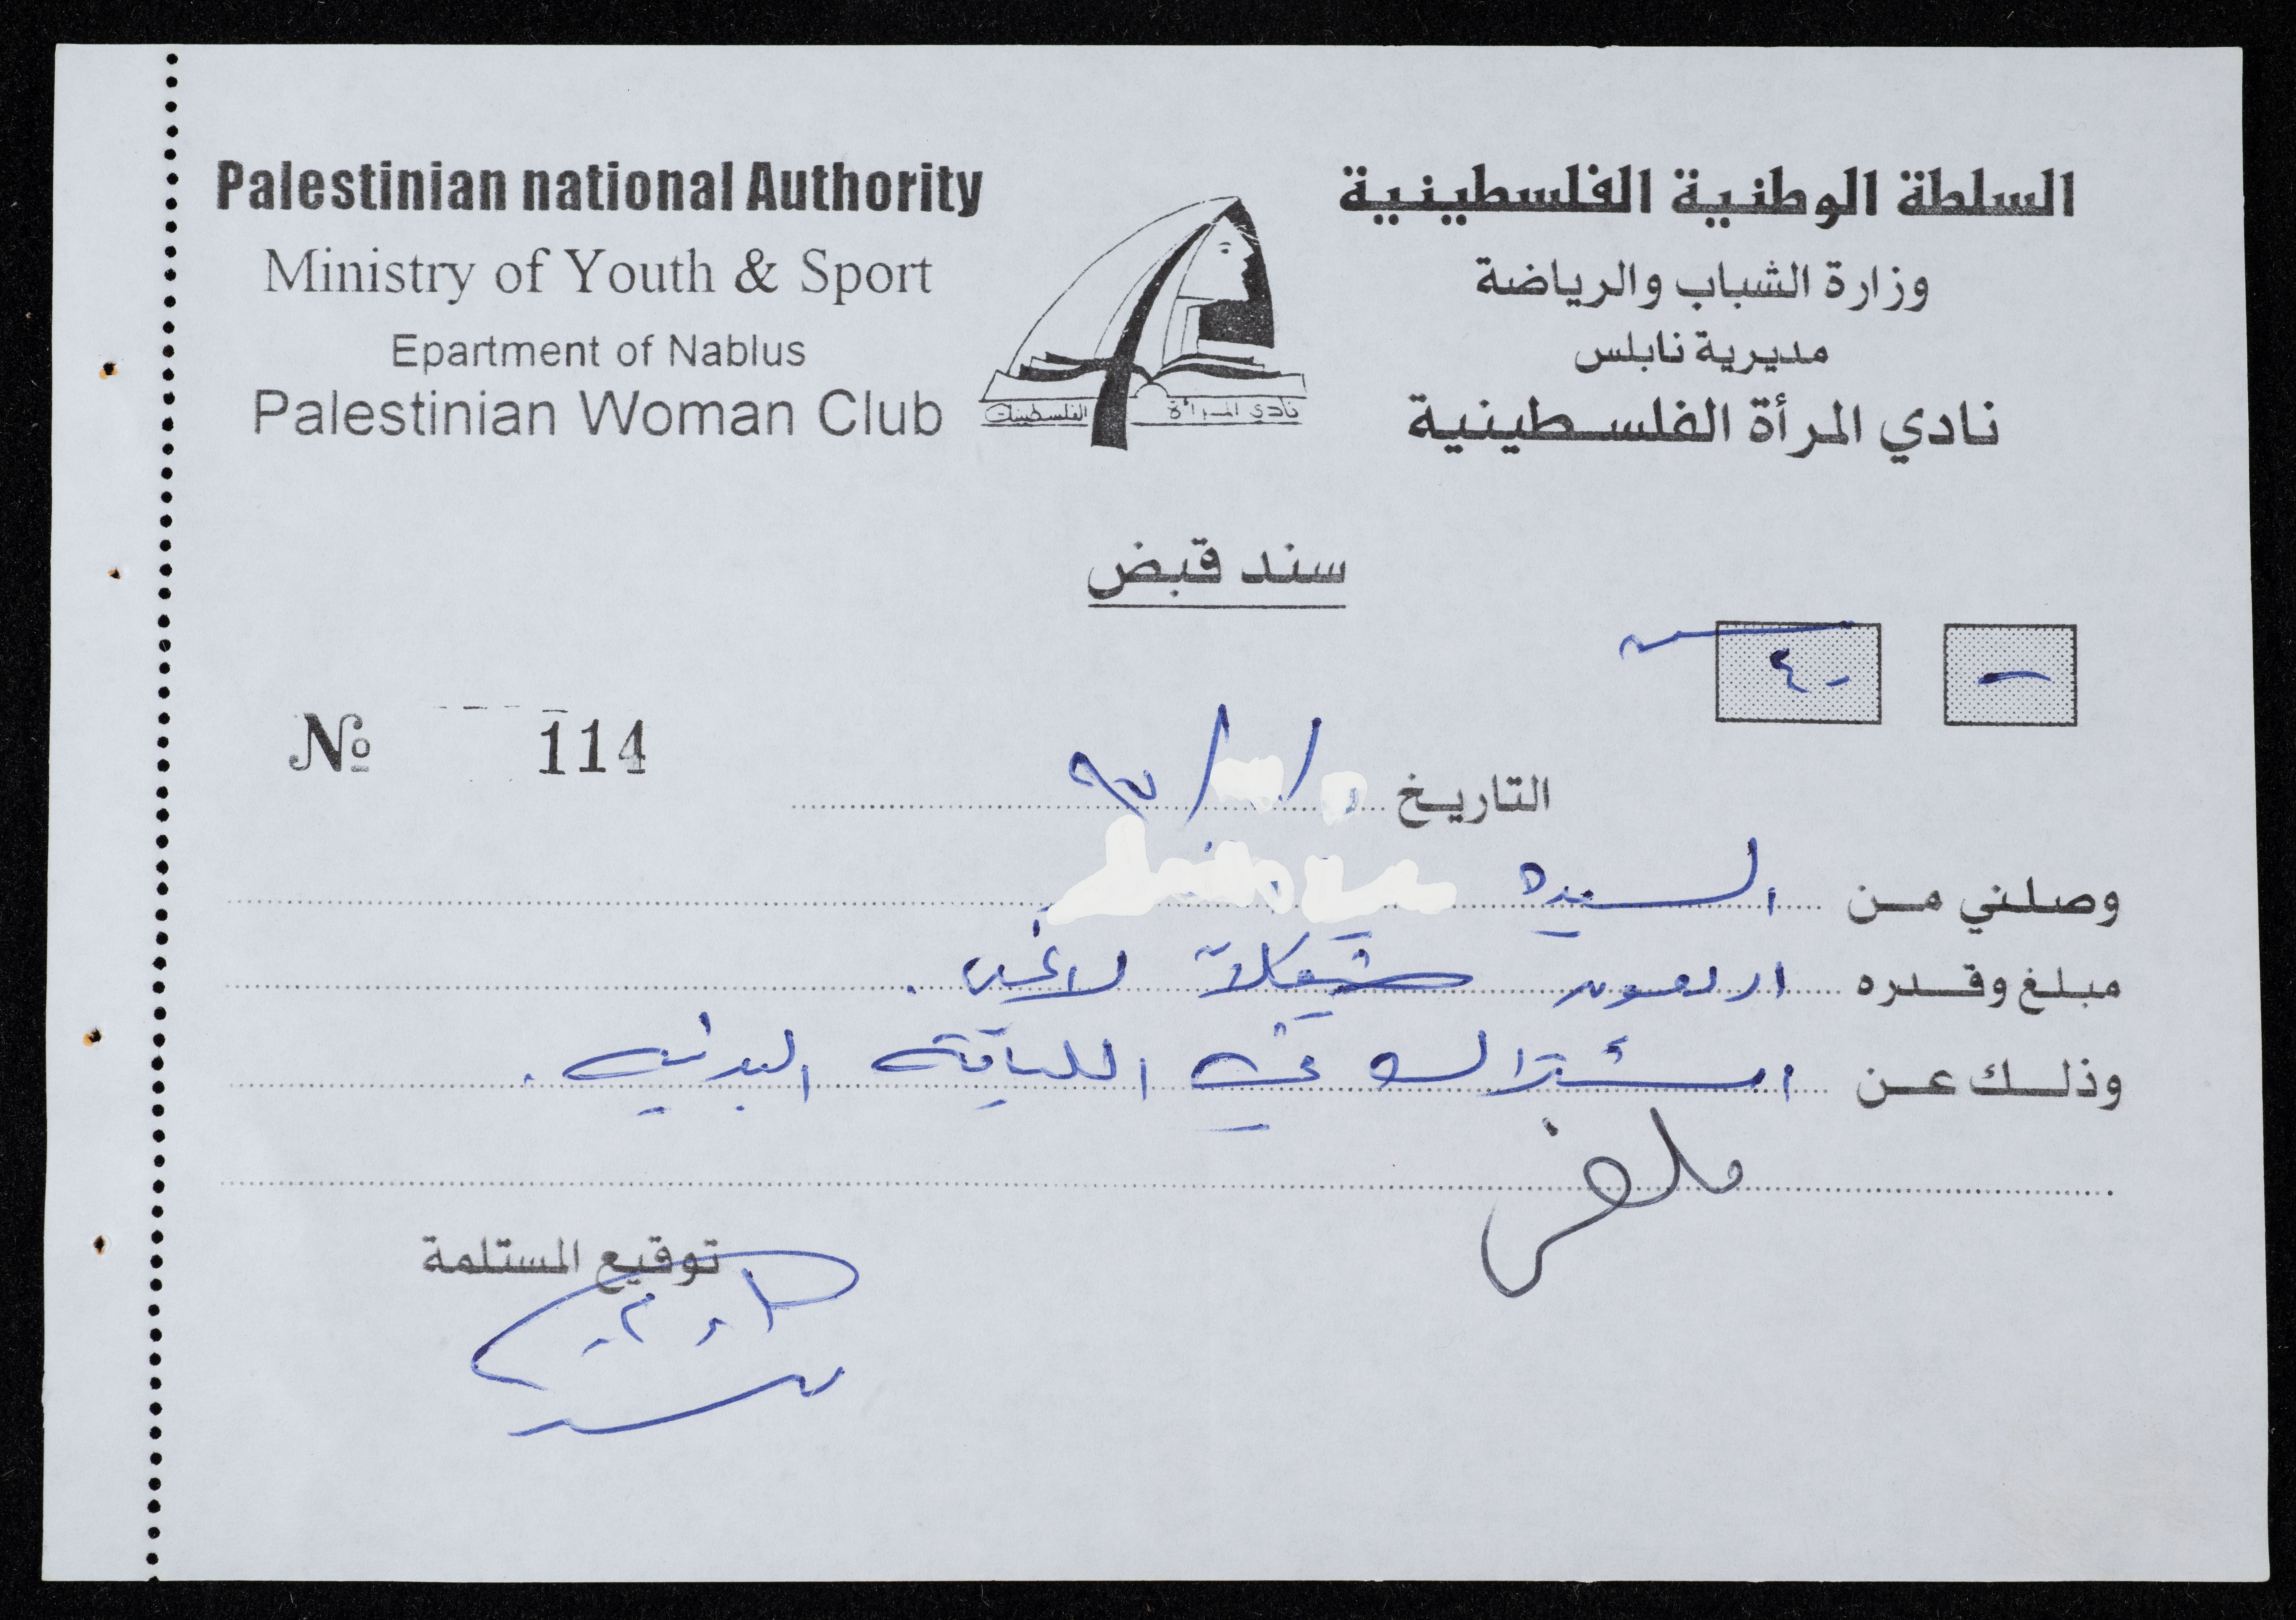 Palestinian national Authority
Ministry of Youth & Sport
Epartment of Nablus
Palestinian Woman Club
نادي المرأة الفلسطينية
السلطة الوطنية الفلسطينية
وزارة الشباب والرياضة
مديرية نابلس
نادي المرأة الفلسطينية
سند قبض
٤٠ –
№ 114
التاريخ / / ٩٧
وصلني من السيده
مبلغ وقدره اربعون شيكلاً لاغير .
وذلك عن اشتراك في اللياقة البدنيه .
توقيع المستلمة